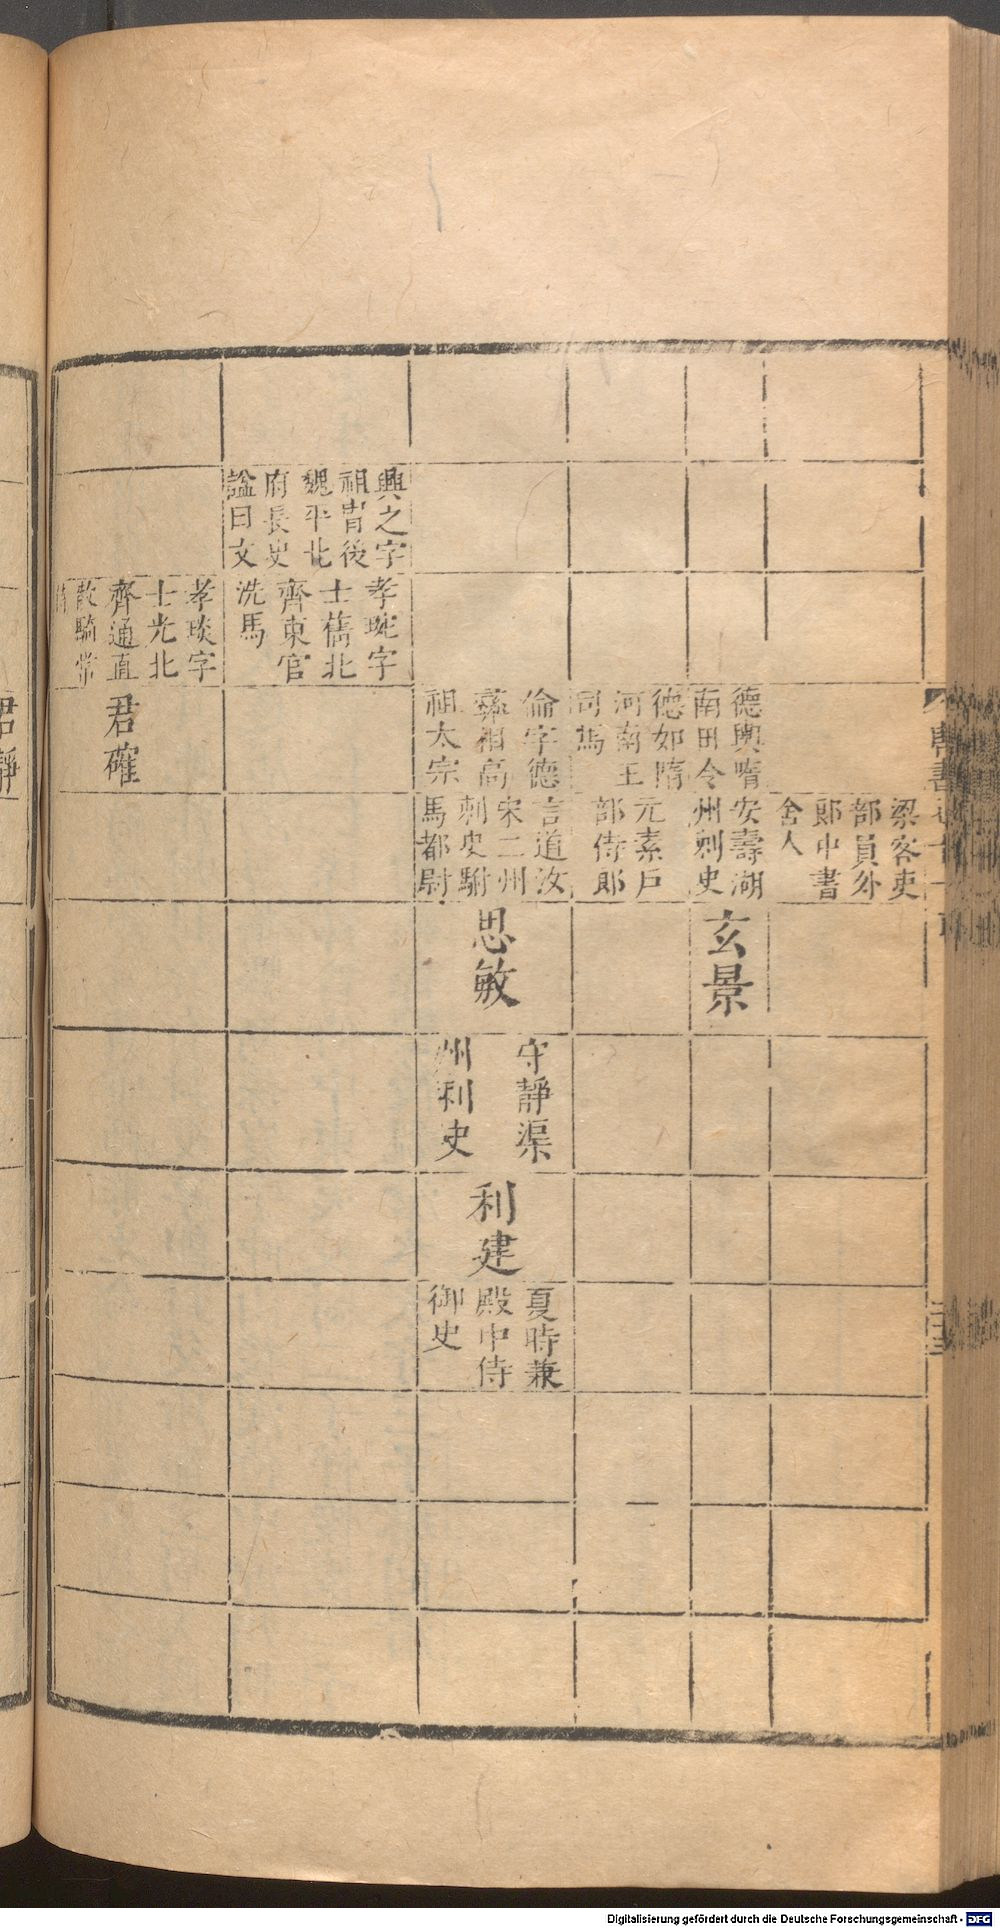 梁客吏
部員外
郎中書
舍人
德輿隋
南田令
安壽湖
州刺史
玄景
德如隋
河南王
司馬
元素戶
部侍郎
倫字德
彝相高
祖太宗
言道汝
宋二州
刺史駙
馬都尉
思敏
守靜渠
州利史
利建
夏時兼
殿中侍
御史
興之字
祖胄後
魏平北
府長史
諡曰文
孝琬字
士儁北
齊東宮
洗馬
孝琰字
士光北
齊通直
散騎常
君確
君靜
Digitalisierung gefördert durch die Deutsche Forschungsgemeinschaft - DFG